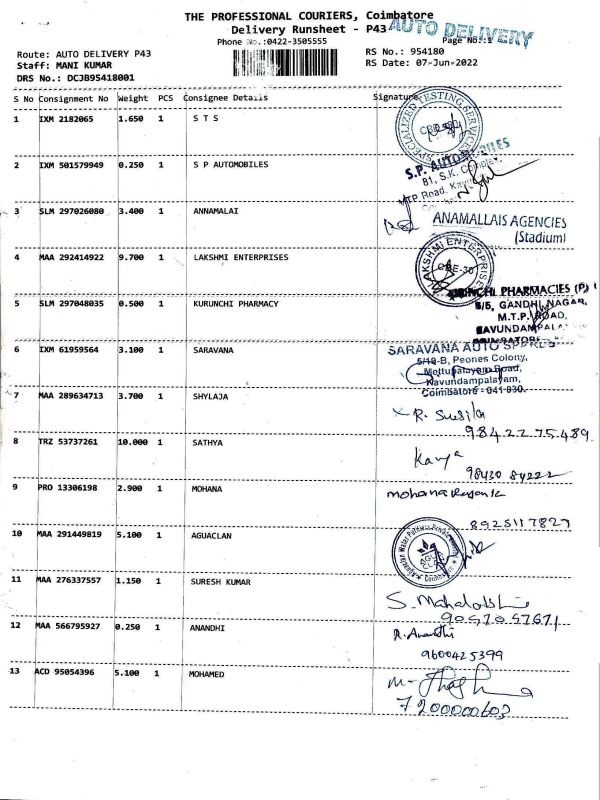 THE PROFESSIONAL COURIERS, Coimbatore
Delivery Runsheet - P43
AUTO DELIVERY
Phone No.:0422-3505555
Page No.:1
Route: AUTO DELIVERY P43
RS No.: 954180
Staff: MANI KUMAR
RS Date: 07-Jun-2022
DRS No.: DCJB95418001
S No Consignment No Weight PCS Consignee Details Signature
1 IXM 2182065 1.650 1 S T S
SPECIALIZED TESTING SERVICE
2 IXM 501579949 0.250 1 S P AUTOMOBILES
S.P. AUTOMOBILES
81, S.K. Complex,
MTP Road,
3 SLM 297026080 3.400 1 ANNAMALAI
ANAMALLAIS AGENCIES
(Stadium)
4 MAA 292414922 9.700 1 LAKSHMI ENTERPRISES
LAKSHMI ENTERPRISES
CBE-30
5 SLM 297048035 0.500 1 KURUNCHI PHARMACY
PHARMACIES (P)
5/5, GANDHI NAGAR,
M.T.P. ROAD,
6 IXM 61959564 3.100 1 SARAVANA
SARAVANA AUTO SPARES
5/10-B, Peones Colony,
Mettupalayam Road,
Kavundampalayam,
Coimbatore - 641 030.
7 MAA 289634713 3.700 1 SHYLAJA
R. Susila
984 22 75489
8 TRZ 53737261 10.000 1 SATHYA
Kavya
98430 84222
9 PRO 13306198 2.900 1 MOHANA
8925117827
10 MAA 291449819 5.100 1 AGUACLAN
AGUA CLAN
Coimbatore
11 MAA 276337557 1.150 1 SURESH KUMAR
S. Mahalakshmi
9057057671
12 MAA 566795927 0.250 1 ANANDHI
R. Anandhi
9600425399
13 ACD 95054396 5.100 1 MOHAMED
7200000603